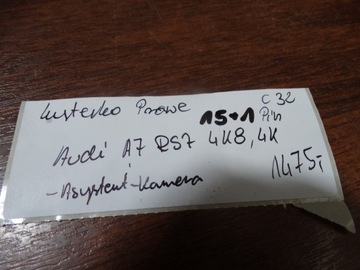 Lusterko Prawe 15+1 Pin C 32
Audi A7 RS7 4K8, 4K
- Asystent - Kamera 1475,-